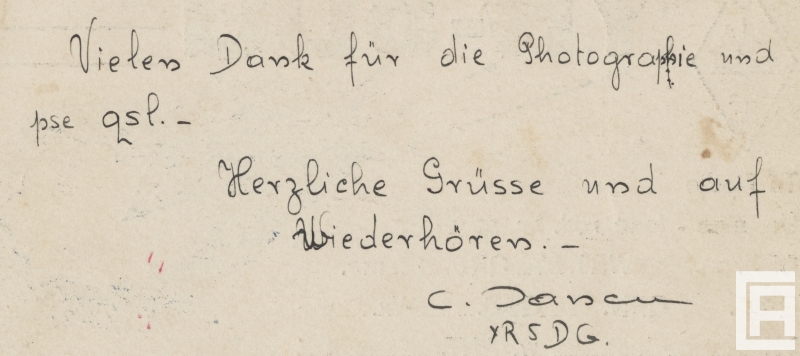 Vielen Dank für die Photographie und
pse qsl. -
Herzliche Grüsse und auf
Wiederhören. -
C.
YR5DG.